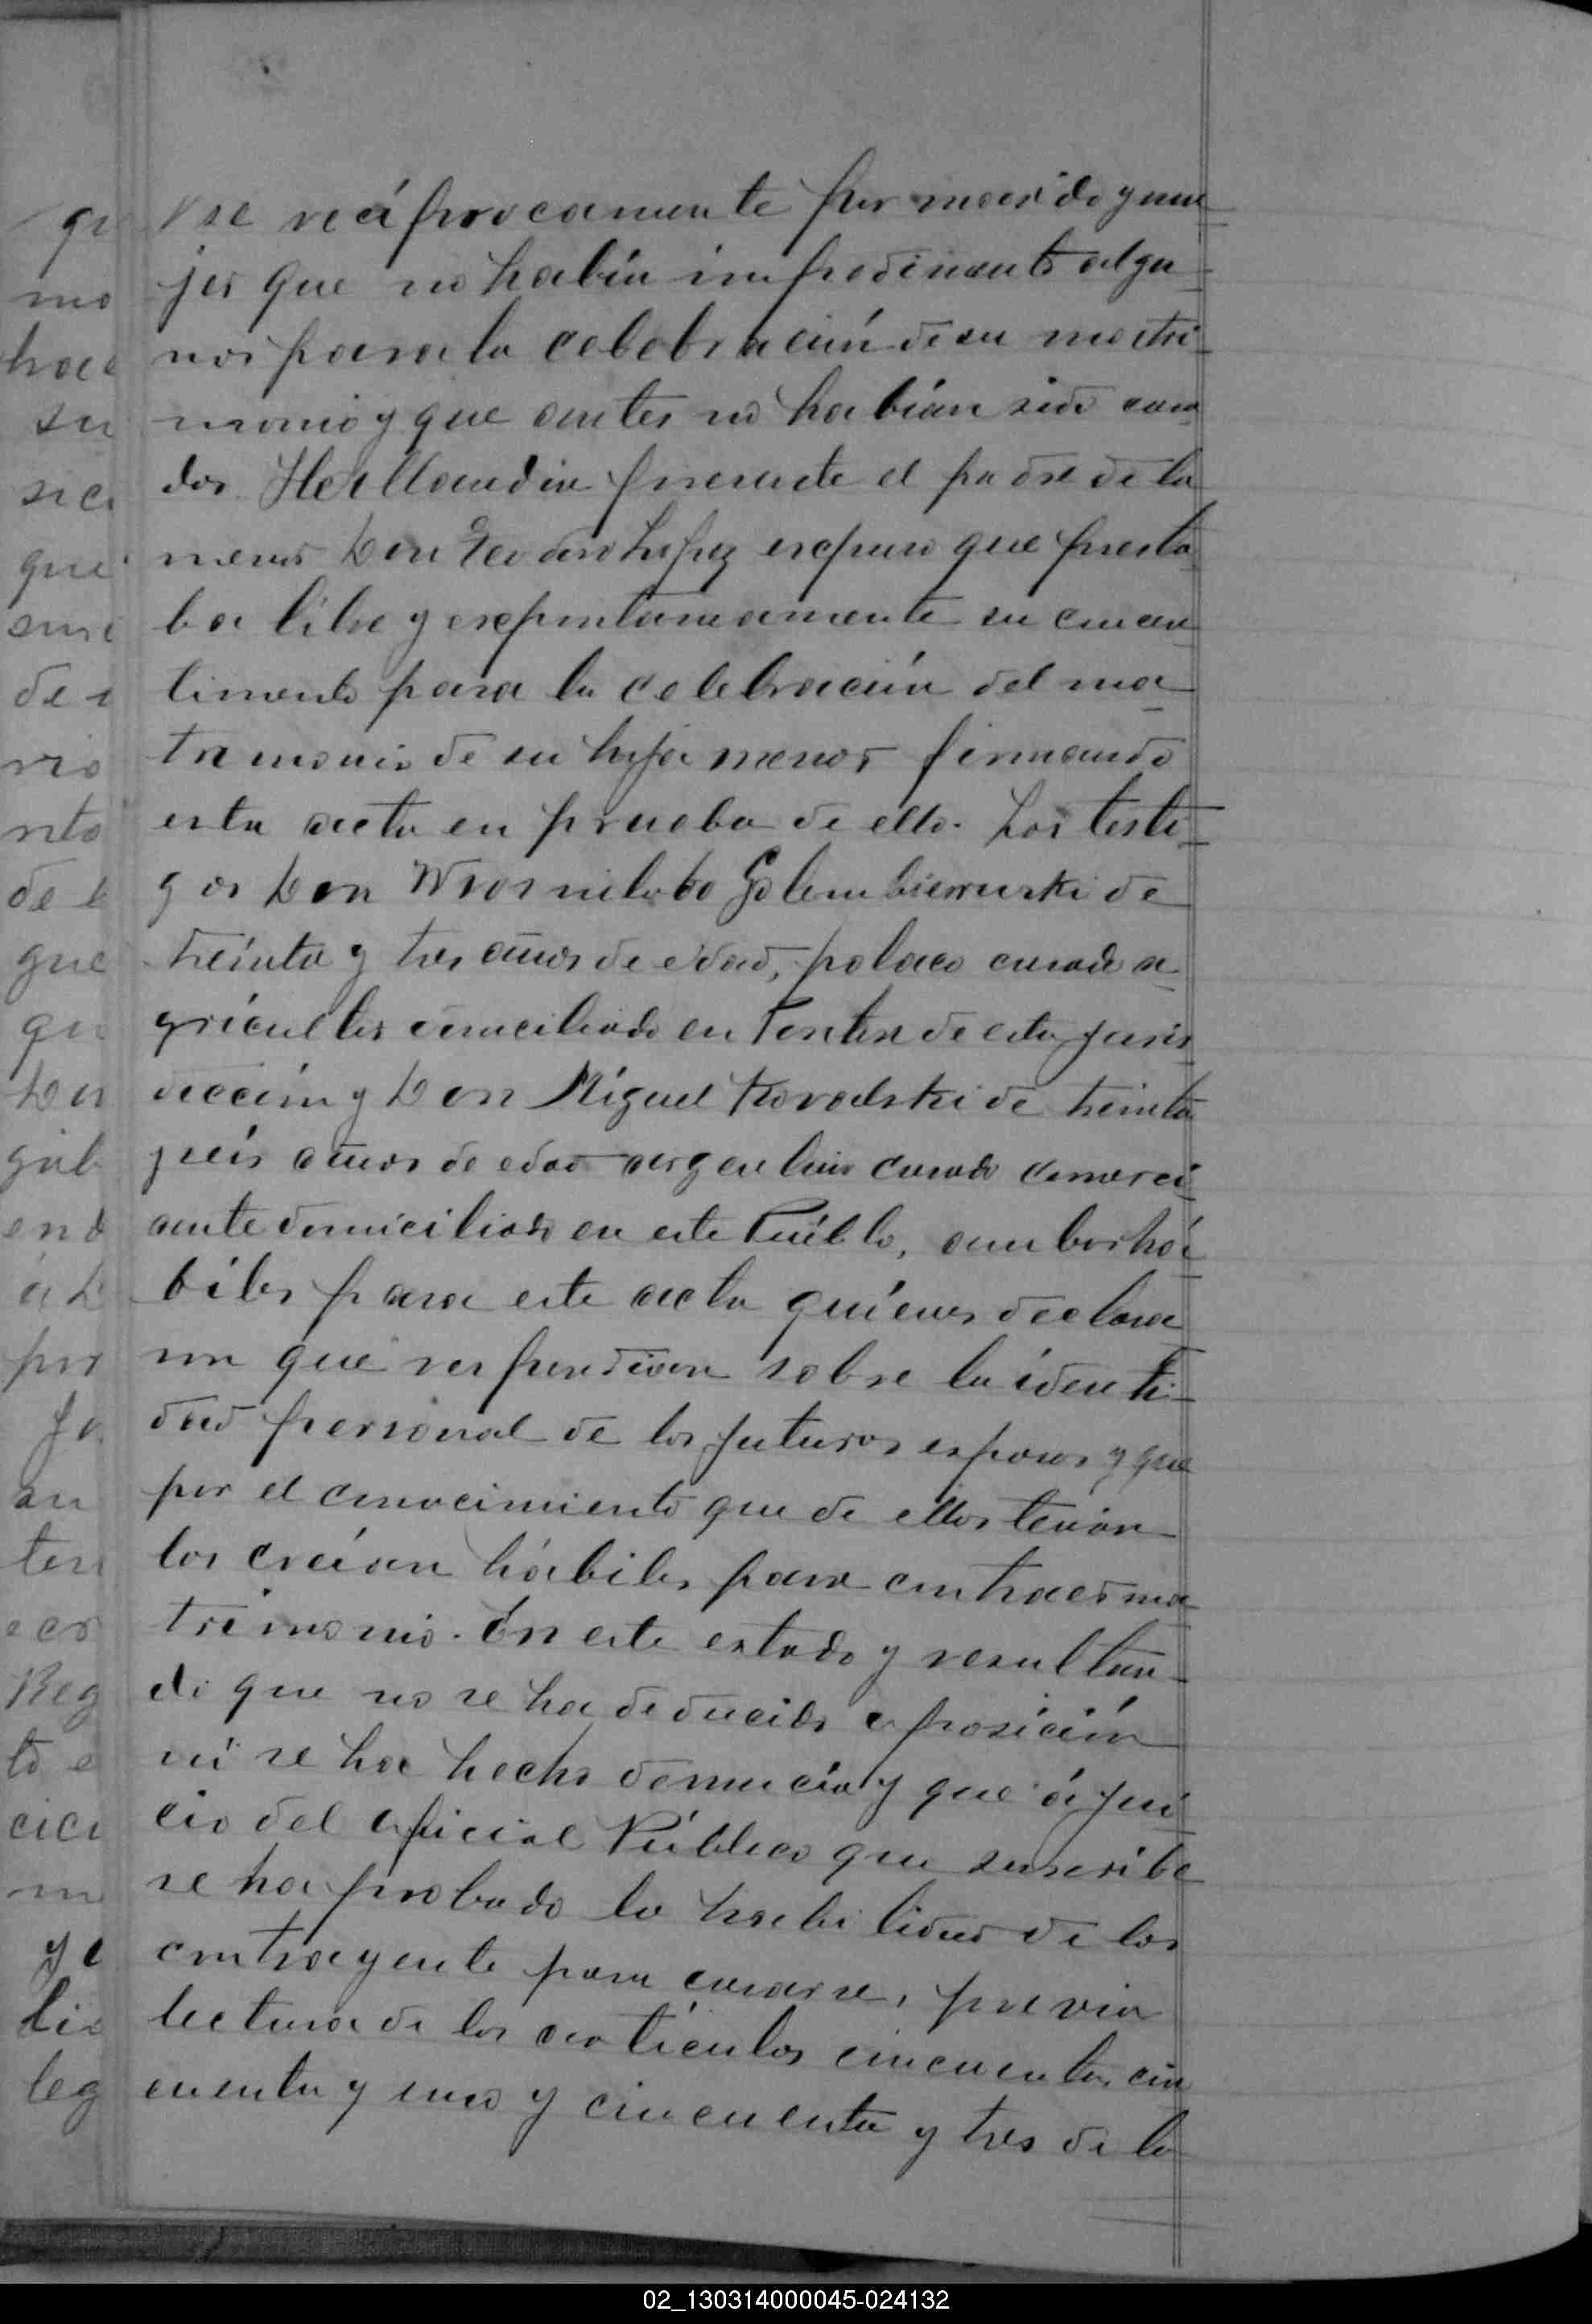 rse recíprocamente por marido y mu
jer que no había impedimento algu
nos para la celebración de su matri
monio y que antes no habían sido casa
dos. Hallandose presente el padre de la
menor Don Lopez expuso que presta
ba libre y expontaneamente su consen
timento para la celebración del ma
trimonio de su hija menor firmando
esta acta en prueba de ello. Los testi
gos Don Golembiewski de
treinta y tres años de edad, polaco casado a
gricultor domiciliado en de esta juris
dicción y Don Miguel Kovalski de treinta
seis años de edad argentino casado comerci
ante domiciliado en este Pueblo, ambos há
biles para este acto quíenes declara
ron que respondian sobre la identi
dad personal de los futuros esposos y que
por el conocimiento que de ellos tenían
los creían hábiles para contraer ma
trimonio. En este estado y resultan
do que no se ha deducido oposición
ni se ha hecho denuncia y que á jui
cio del oficial Público que suscribe
se ha probado la habilidad de los
contrayente para casarse, previa
lectura de los artículos cincuenta, cin
cuenta y uno y cincuenta y tres de la
02_130314000045-024132